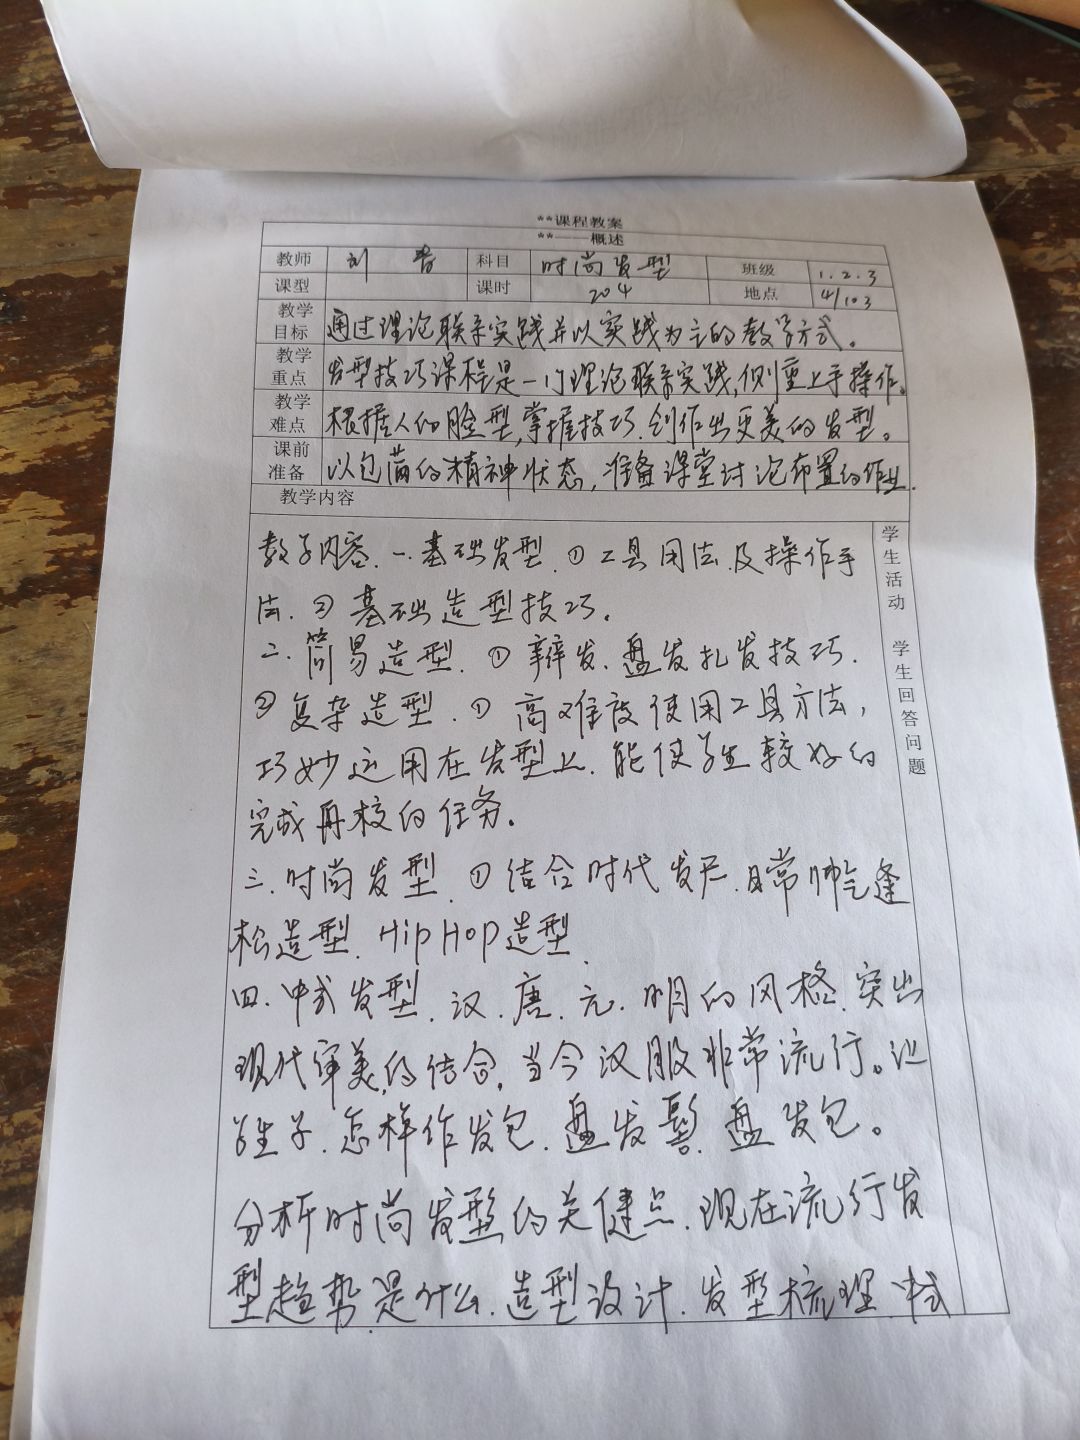 **课程教案
**——概述
教师 刘 科目 时尚发型 班级 1.2.3
课型 课时 204 地点 4/103
教学目标 通过理论联系实践并以实践为主的教学方式。
教学重点 发型技巧课程是一门理论联系实践,侧重上手操作。
教学难点 根据人的脸型,掌握技巧.创作出更美的发型。
课前准备 以包满的精神状态,准备课堂讨论布置的作业.
教学内容
学生活动 学生回答问题
教学内容.一.基础发型.①工具用法及操作手
法.②基础造型技巧。
二.简易造型.①辫发.盘发扎发技巧.
②复杂造型.①高难度使用工具方法,
巧妙运用在发型上.能使学生较好的
完成再校的任务。
三.时尚发型.①结合时代发展.日常帅气逢
松造型.HipHop造型.
四.中式发型.汉.唐.元.明的风格.突出
现代审美的结合.当今汉服非常流行。让
学生学.怎样作发包.盘发髻.盘发包。
分析时尚发型的关健点.现在流行发
型趋势是什么.造型设计.发型梳理.中式